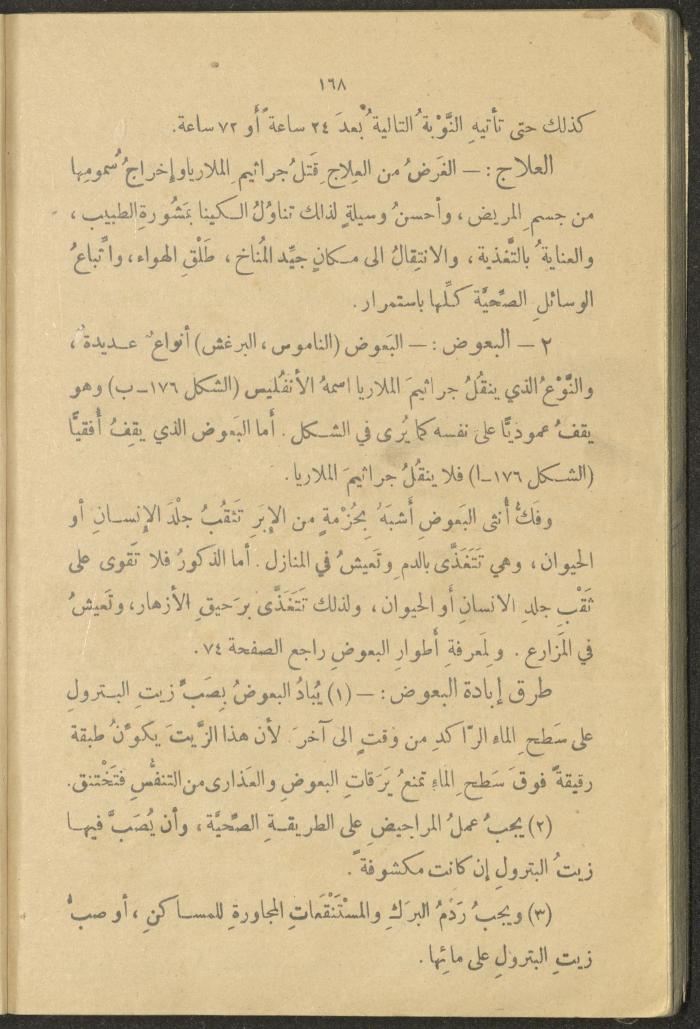 ١٦٨
كذلك حتى تأتيهِ النَّوْبةُ التاليةُ بعدَ ٢٤ ساعةً أَو ٧٢ ساعة.
العلاج : — الغَرَضُ من العِلاجِ قَتلُ جراثيمِ الملاريا وإخراجُ سُمومِها
من جسمِ المريض ، وأحسنُ وسيلةٍ لذلك تناوُلُ الكينا بمَشُورةِ الطبيب ،
والعنايةُ بالتَّغذية ، والانتِقالُ الى مكانٍ جيِّد المُناخ ، طَلْقِ الهواء ، واتِّباعُ
الوسائلِ الصِّحيَّة كلِّها باستمرار .
٢ — البعوض : — البَعوض (الناموس ، البرغش) أنواعٌ عديدةٌ ،
والنَّوْعُ الذي ينقُلُ جراثيمَ الملاريا اسمهُ الأنفُليس (الشكل ١٧٦ــب) وهو
يقفُ عموديًّا على نفسه كما يُرى في الشكل . أما البَعوض الذي يقِفُ أُفقيًّا
(الشكل ١٧٦ــا) فلا ينقُلُ جراثيمَ الملاريا .
وفَكُّ أُنثى البَعوضِ أَشبَهُ بحُزْمةٍ من الإِبَرِ تَثقُبُ جلْدَ الإِنسانِ أو
الحيوان ، وهي تَتَغَذَّى بالدمِ وتَعيشُ في المنازل . أما الذكورُ فلا تَقوى على
ثَقْبِ جلدِ الانسانِ أو الحيوان ، ولذلك تَتَغَذَّى برَحيقِ الأزهار ، وتَعيشُ
في المَزارع . ولمَعرفةِ أطوارِ البعوضِ راجع الصفحة ٧٤ .
طرق إبادة البعوض : — (١) يُبادُ البعوضُ بِصَبِّ زيتِ البترولِ
على سَطحِ الماء الرّاكدِ من وقتٍ الى آخرَ . لأن هذا الزَّيتَ يكوِّنُ طبقةً
رقيقةً فوقَ سَطحِ الماءِ تمنعُ يَرَقاتِ البعوضِ والعَذارى من التنفُّسِ فتَخْتنق .
(٢) يجبُ عملُ المراحيضِ على الطريقةِ الصِّحيَّة ، وأن يُصَبَّ فيها
زيتُ البترولِ إن كانت مكشوفةً .
(٣) ويجبُ رَدْمُ البرَكِ والمسْتَنْقَعاتِ المجاورةِ للمساكنِ ، أو صبُّ
زيتِ البترولِ على مائِها .